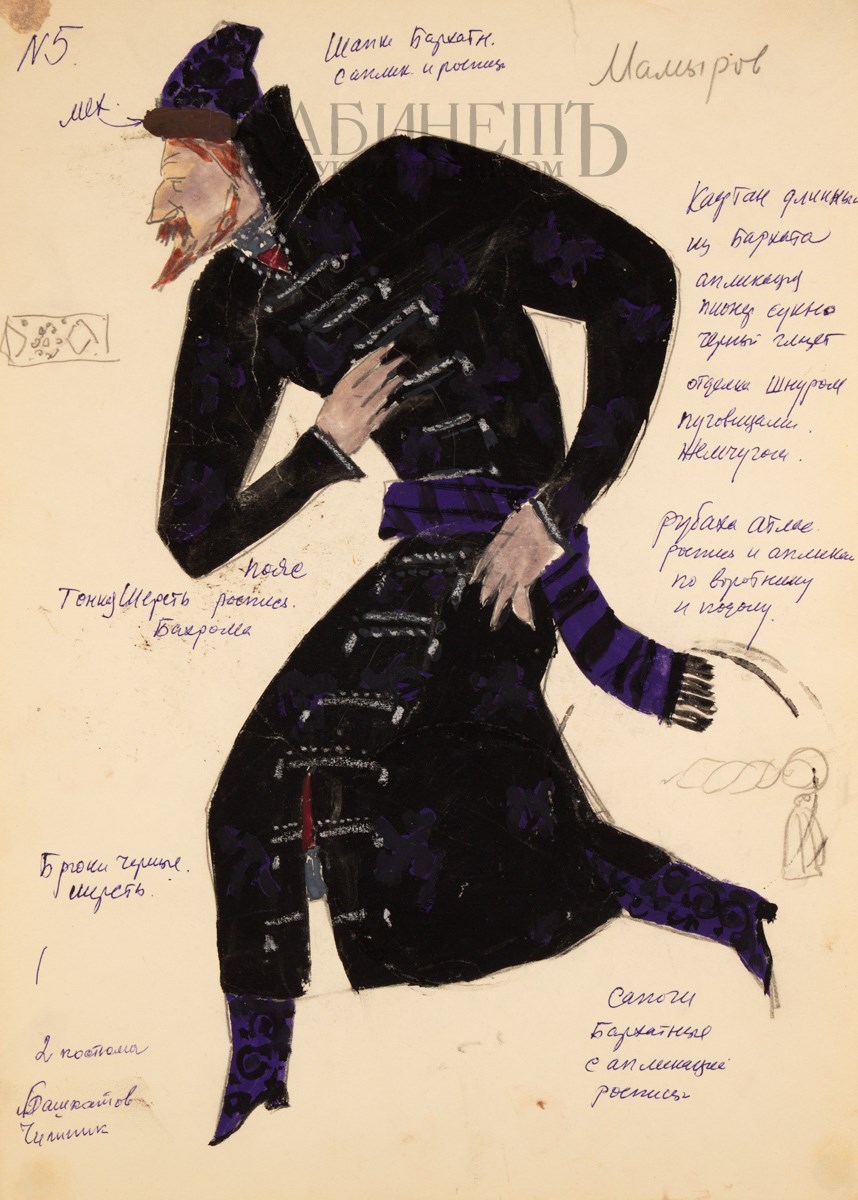 N5.
Шапка Бархатн.
с аплик. и роспись
Мамыров
мех.
КАБИНЕТЪ
Кафтан длинный
из Бархата
апликация
сукно
черный
отделка Шнуром
пуговицами.
Жемчугом.
рубаха атлас.
роспись и апликац
по воротнику
и подолу.
пояс
Тонкая Шерсть роспись.
Бахрома
Брюки черные.
шерсть.
2 костюма
Башкатов
Сапоги
Бархатные
с апликацией
роспись